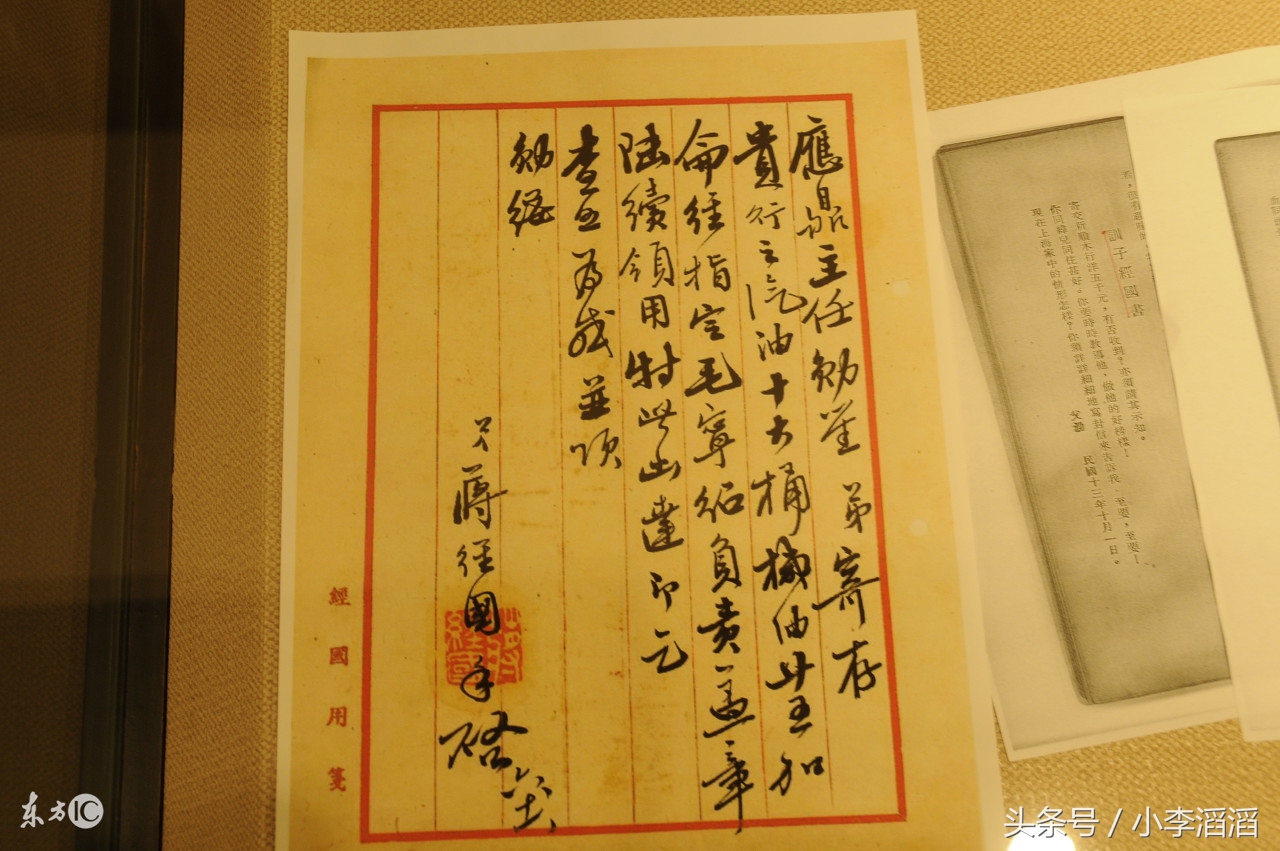 應鼎主任勛鑒 弟寄存
貴行之汽油十大桶機油廿五加
侖經指定毛寧紹負責蓋章
陸續領用特此函達即乞
查照為感並頌
勛綏
弟蔣經國手啓
經國用箋
訓子經國書
寄交新鼎木行洋五千元,有否收到?亦須請其示知。
你同緯兒同住甚好。你要時時教導他,做他的好榜樣!
現在上海家中的情形怎樣?你須詳詳細細地寫封信來告訴我 至要,至要!
父泐 民國十三年十月一日。
东方IC
头条号 / 小李滔滔